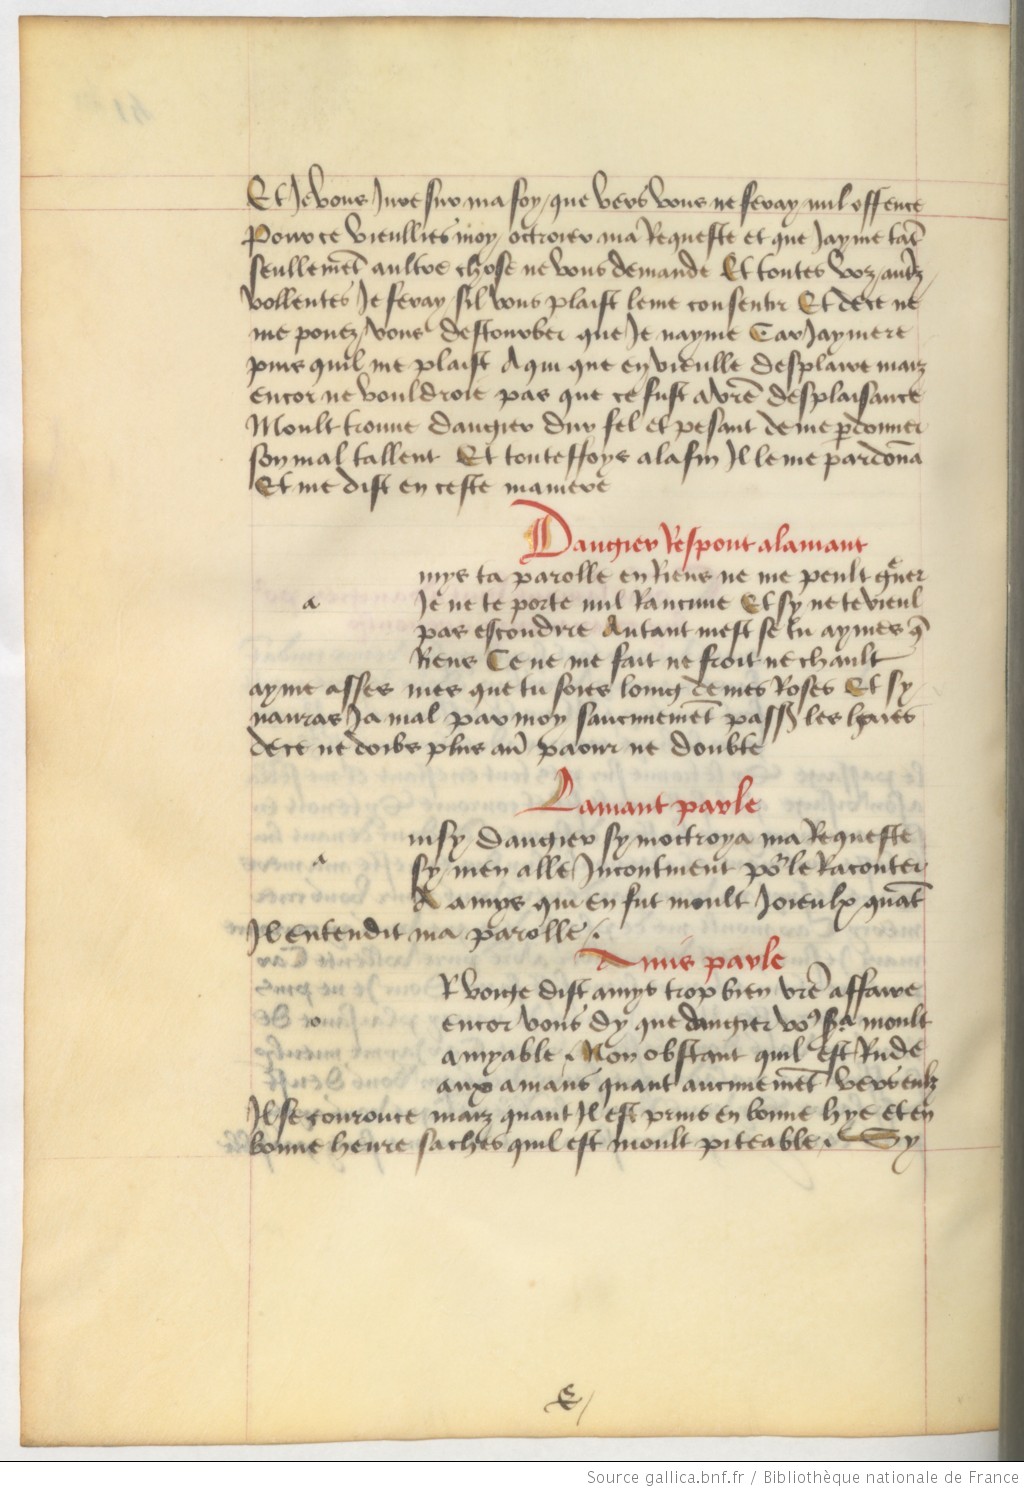 Et Je vous Jure sur ma foy / que vers vous ne feray nul offence
Pour ce vieullies moy / octroier ma Requeste et que Jayme tāt
seullemēt aultre chose ne vous demande Et toutes voz / autrez
vollentes Je feray sil vous plaist le me consentir Et de ce ne
me pouez / vous destourber que Je nayme Car Jaymere
puis quil me plaist A qui que en vieulle desplaire maiz
encor ne vouldroie pas que ce fust a vrē desplaisance
Moult trouue dangier dur fel et pesant de me pdonner
son mal tallent Et touteffoys a la fin Il le me pardonā
Et me dist en ceste maniere
Dangier Respont a lamant
mys ta parolle en Riens ne me peult gͤuer
a Je ne te porte nul Rancune Et sy ne te vieul
pas escondire Autant mest se tu aymes q̄
Riens Ce ne me fait ne froit ne chault
ayme asses mes que tu soies loing de mes Roses Et sy
nauras Ja mal par moy saucunemēt passes les haies
de ce ne doibs plus auoir paour ne doubte
Lamant parle
a insy dangier sy moctroya ma Requeste
sy men alle Incontinent po² le Raconter
A amys qui en fut moult Joieulx quāt
Il entendit ma parolle / .
Amis parle
R voige dist amys trop bien vrē affaire
o encor vous dy que dangier vo⁹ sera moult
amyable . Non obstant quil est Rude
aux amans quant aucunemēt vers eulz
Il se courouce maiz quant Il est prins en bonne hye et en
bonne heure saches quil est moult piteable . Sy
Source gallica.bnf.fr / Bibliothèque nationale de France